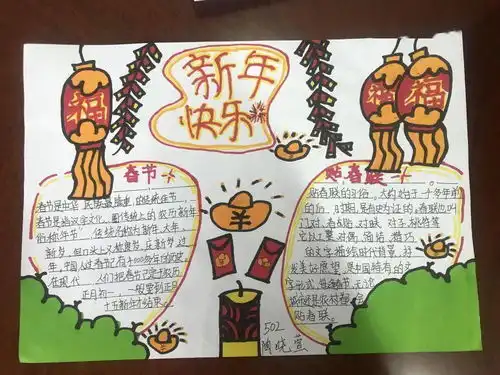 新年
快乐
福
福
福
春节
春节是中华民族最隆重的传统佳节
春节是汉字文化圈传统上的农历新年
俗称"年节"传统名称为新年、大年、
新岁，但口头上又称度岁、庆新岁、过
年，中国人过春节已有4000多年的历史。
在现代 人们把春节定于农历
正月初一 一般要到正月
十五新年才结束。
贴春联
贴春联的习俗，大约始于一千多年前
的后
期，是有史为证的。春联也叫
门对、春贴、对联、对子、桃符等
它以工整、对偶、简洁、精巧
的文字描绘时代背景，抒
发美好愿望，是中国特有的文
学形式，每逢春节，无论
城市还是农村
贴春联。
羊
502
陶晓萱